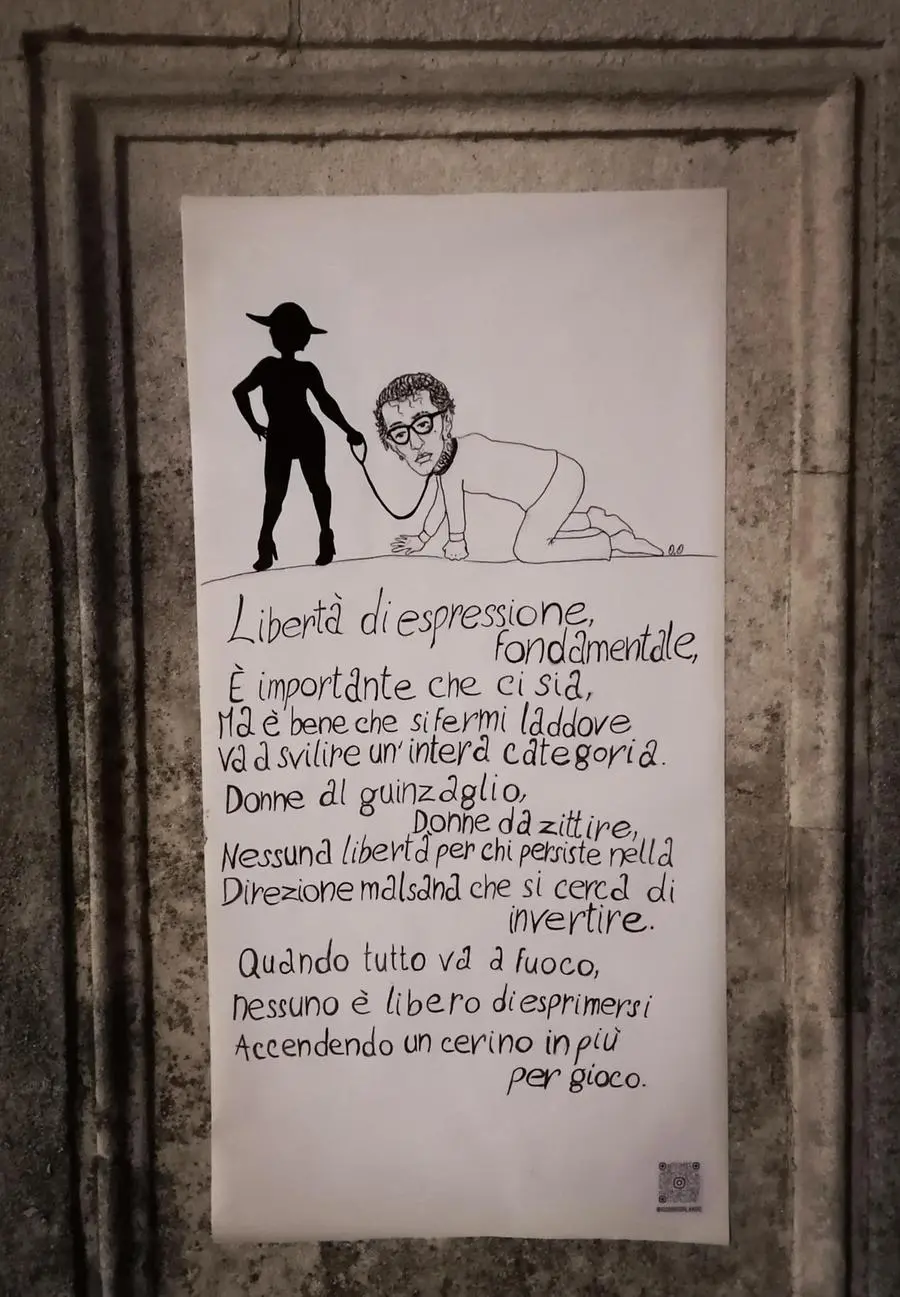 Libertà di espressione,
fondamentale,
È importante che ci sia,
Ma è bene che si fermi laddove
va a svilire un'intera categoria.
Donne al guinzaglio,
Donne da zittire,
Nessuna libertà per chi persiste nella
Direzione malsana che si cerca di
invertire.
Quando tutto va a fuoco,
nessuno è libero di esprimersi
Accendendo un cerino in più
per gioco.